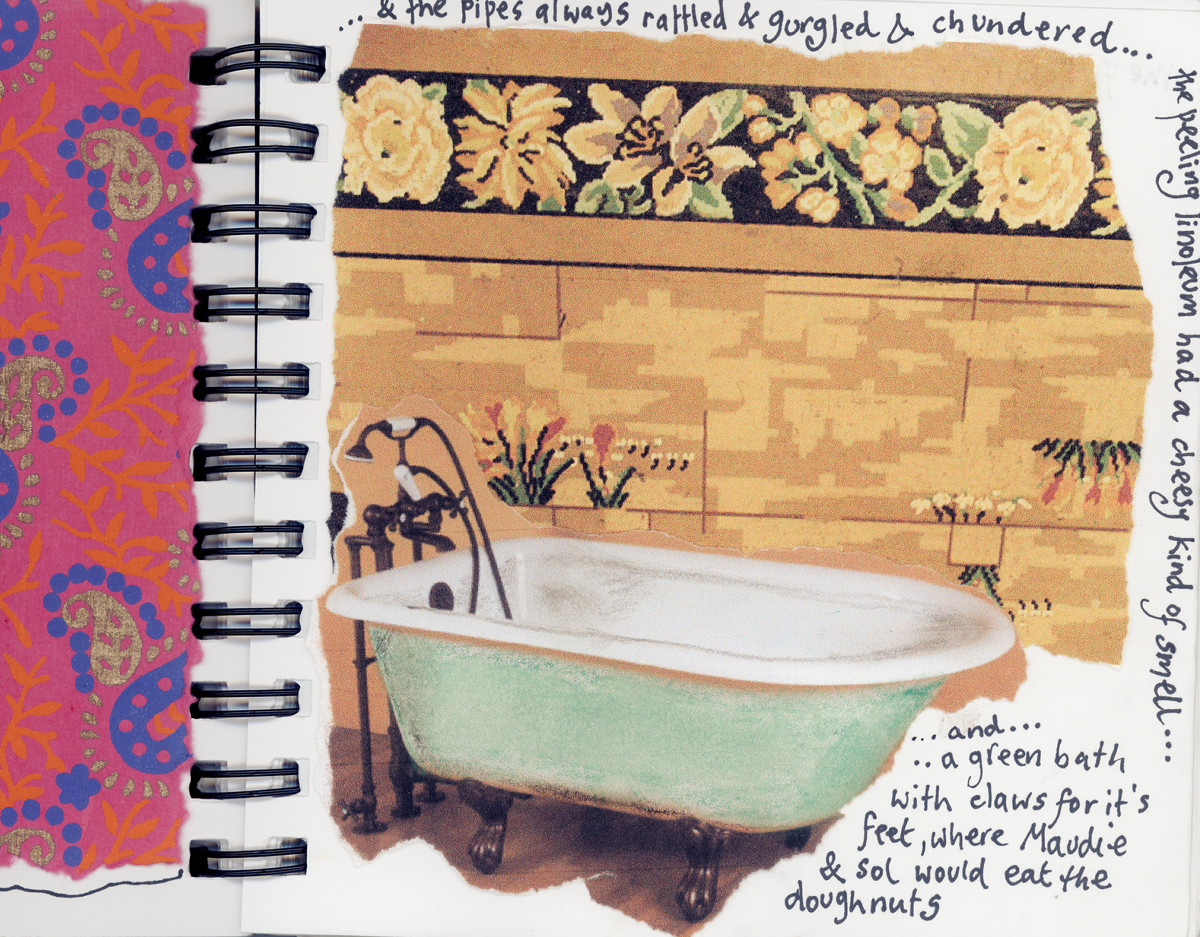 ... & the pipes always rattled & gurgled & chundered...
the peeling linoleum had a cheesy kind of smell...
... and...
.. a green bath
with claws for it's
feet, where Maudie
& sol would eat the
doughnuts